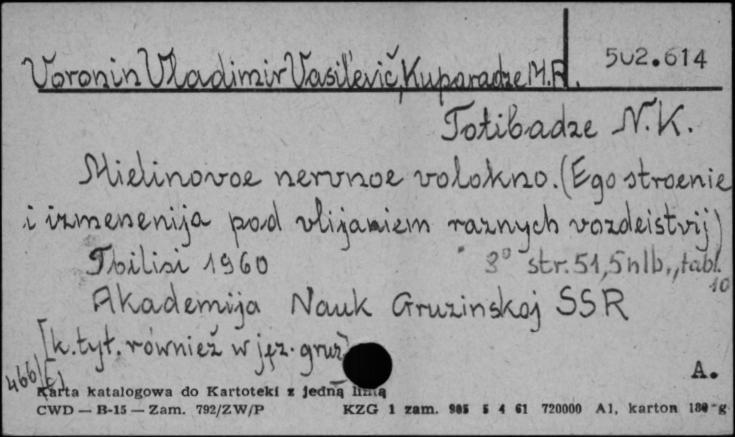 502.614
Voronin Vladimir Vasil'evič, Kuparadze M.R.
Totibadze N.K.
Mielinovoe nervnoe volokno. (Ego stroenie
i izmenenija pod vlijaniem raznych vozdeistvij)
Tbilisi 1960 8° str. 51, 5 nlb., tabl. 10
Akademija Nauk Gruzinskoj SSR
[k. tyt. również w jęz. gruz]
A.
Karta katalogowa do Kartoteki z jedną linią
CWD — B-15 — Zam. 792/ZW/P KZG 1 zam. 905 5 4 61 720000 A1, karton 180 g